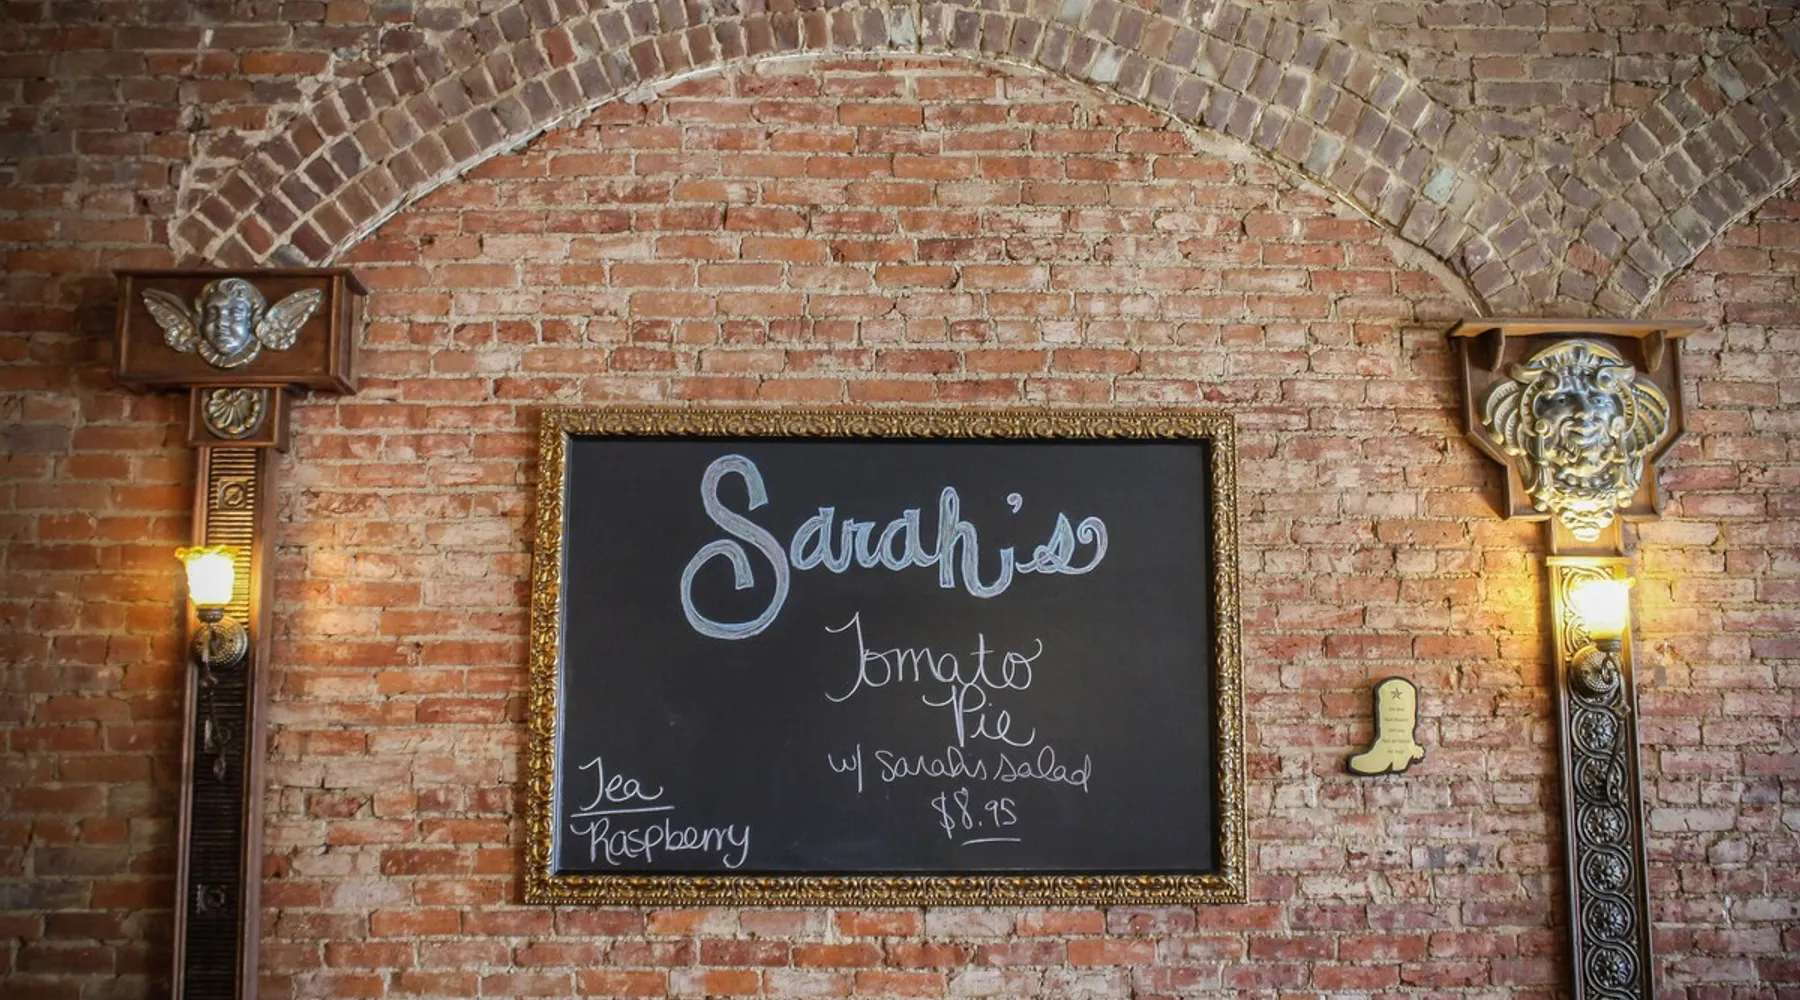 Sarah's
Tomato
Pie
w/ Sarah's Salad
$8.95
Tea
Raspberry